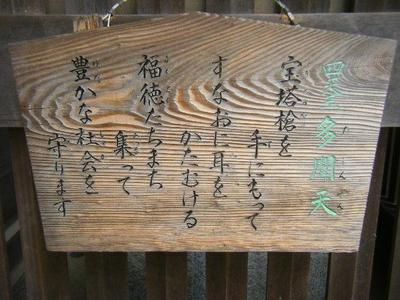 多聞天
宝塔槍を
手にもって
すなおに耳を
かたむける
福徳たちまち
集って
豊かな社会を
守ります